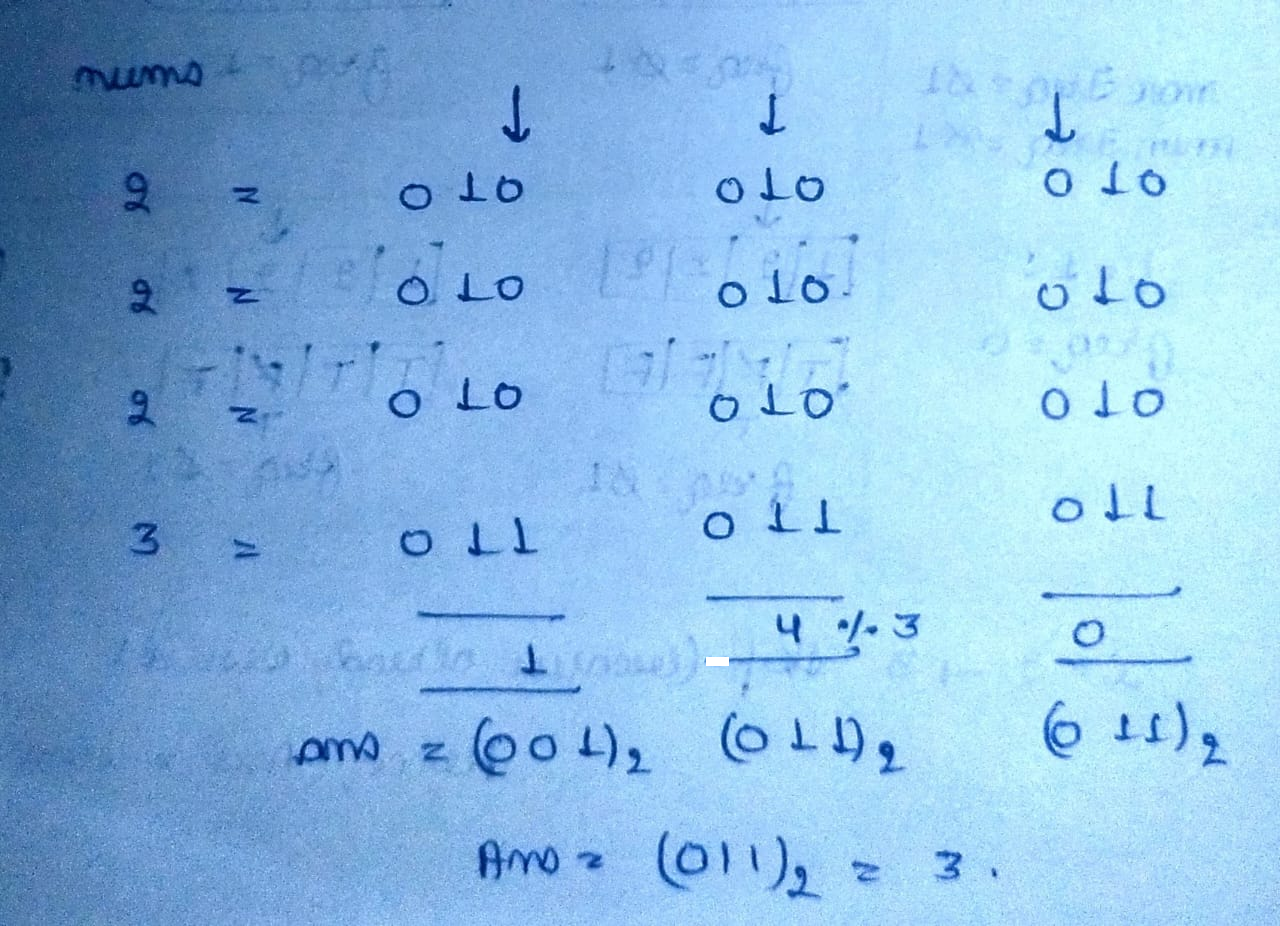 nums
↓ ↓ ↓
2 = 010 010 010
2 = 010 010 010
2 = 010 010 010
3 = 011 011 011
1 4 % 3 0
ans = (001)2 (011)2 (011)2
Ans = (011)2 = 3.